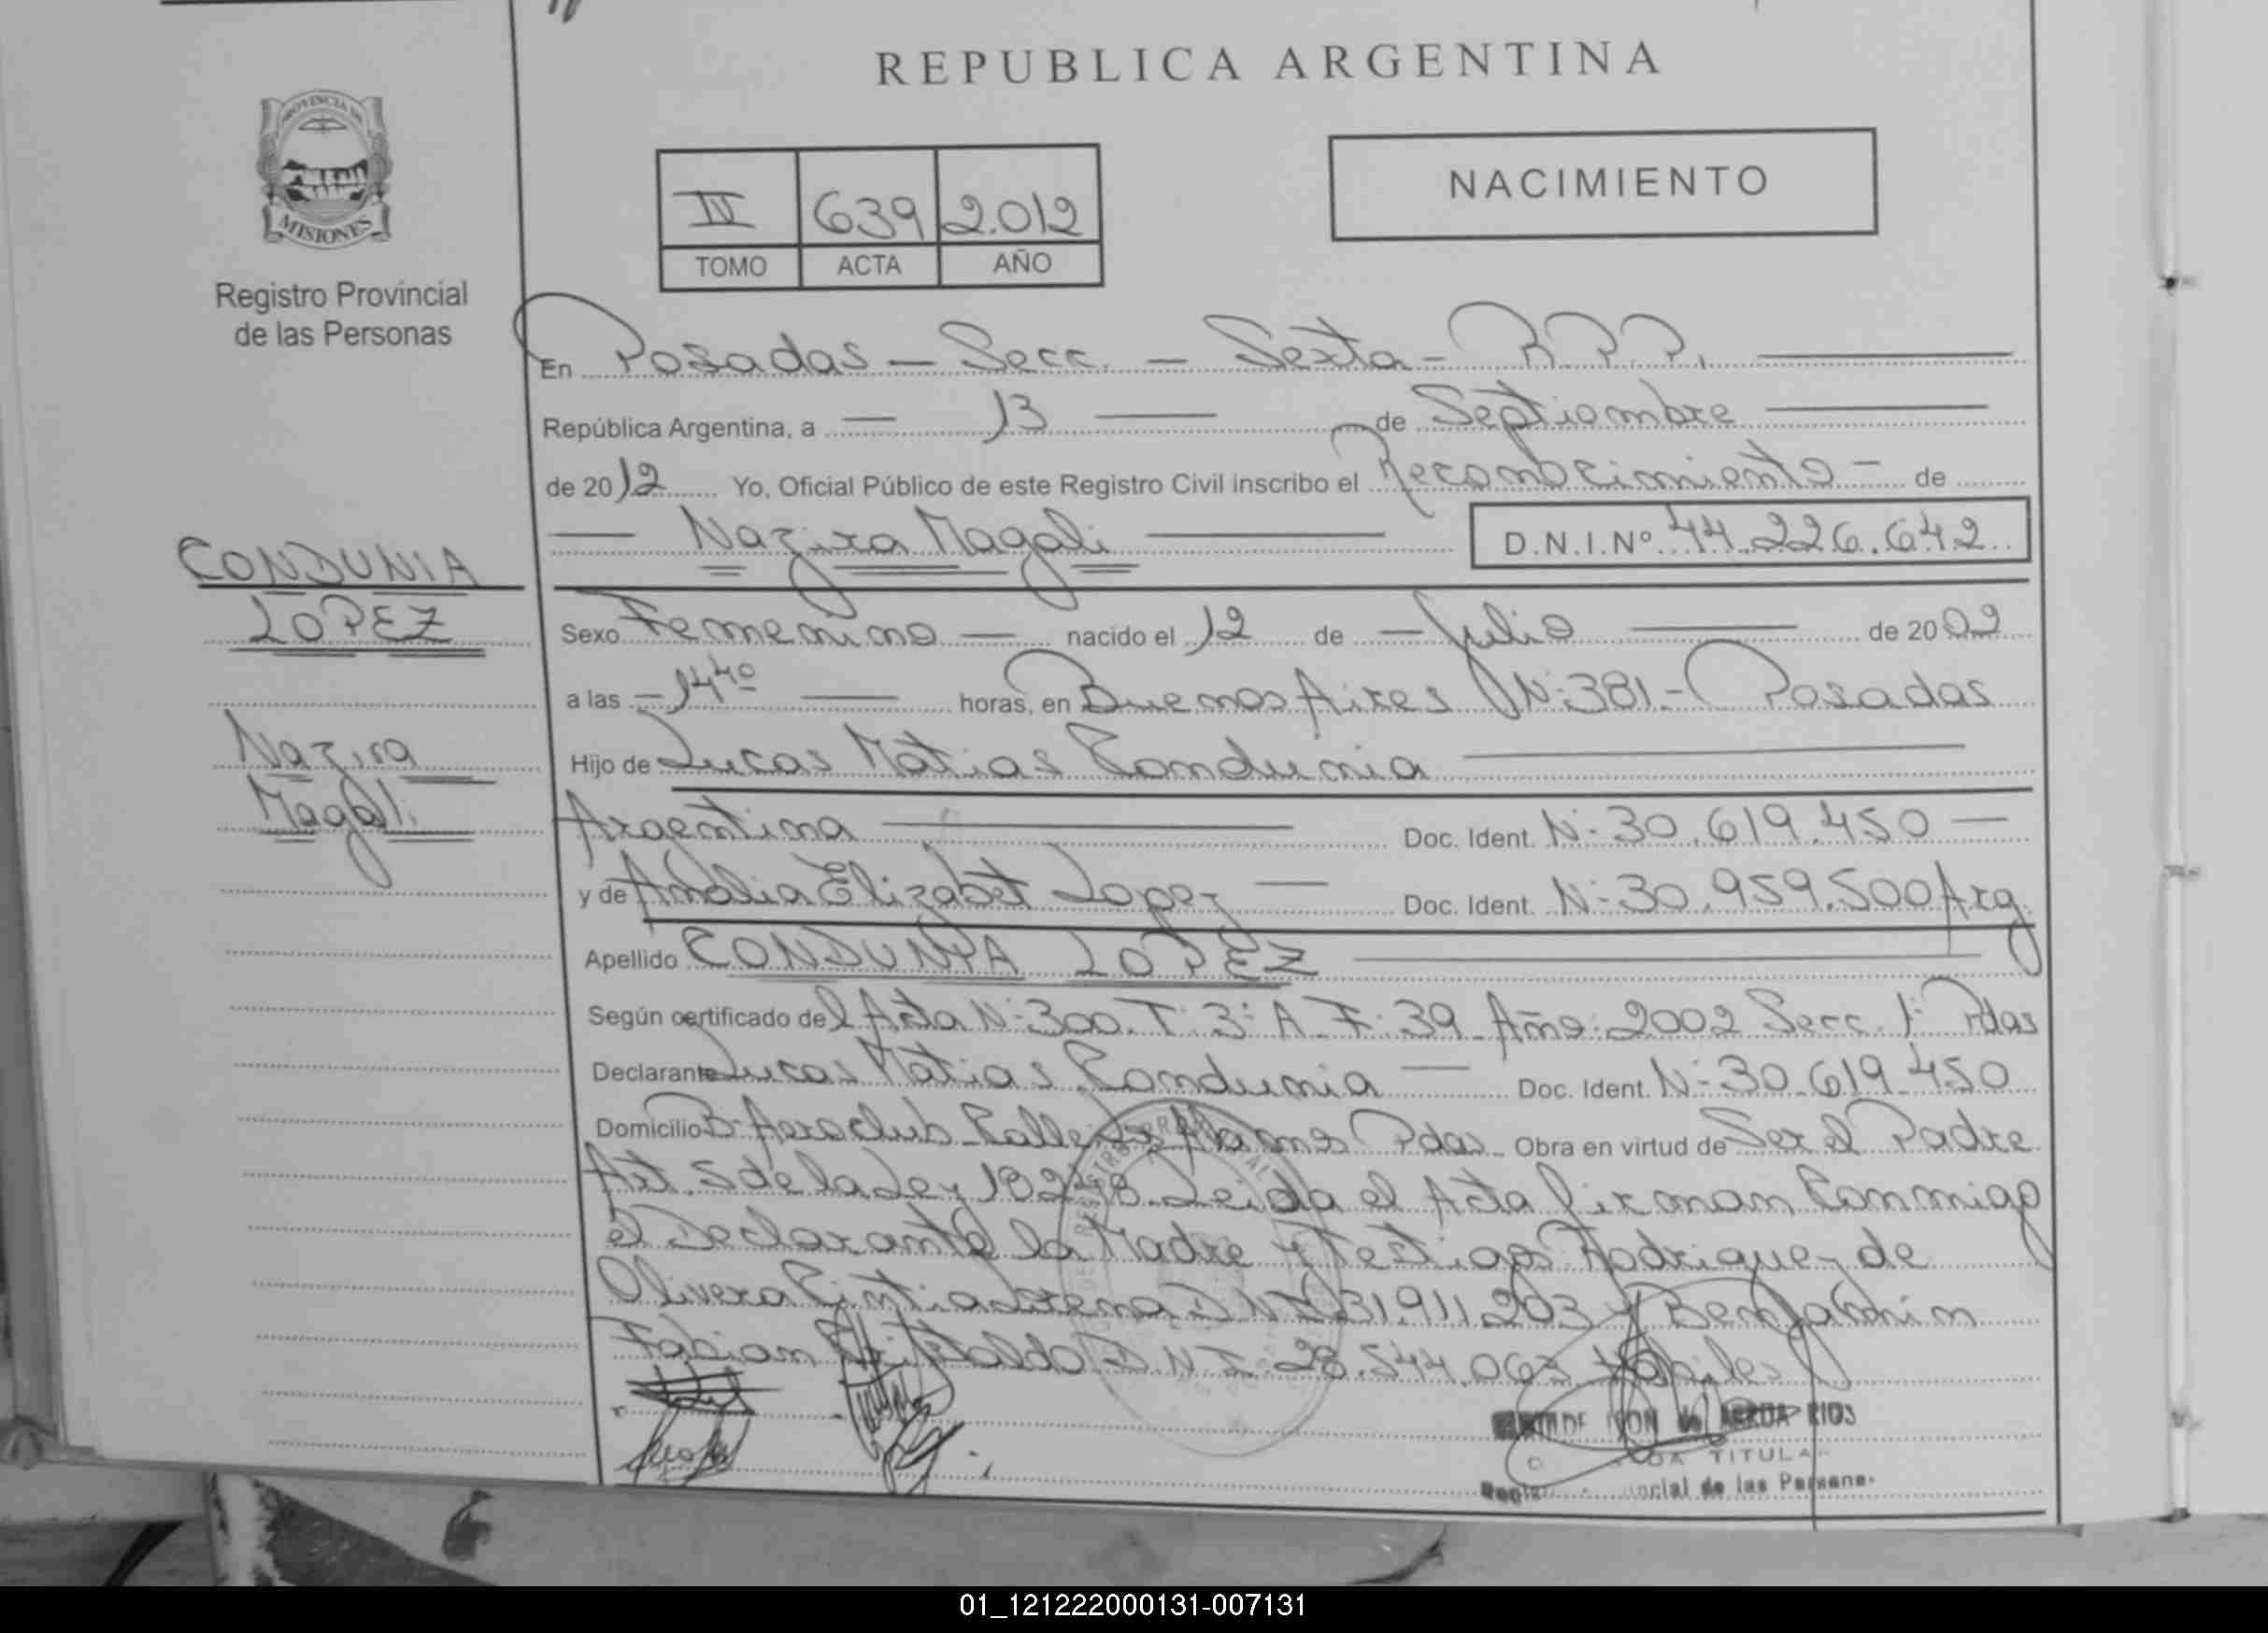 REPUBLICA ARGENTINA
PROVINCIA DE
MISIONES
Registro Provincial
de las Personas
NACIMIENTO
IV 639 2.012
TOMO ACTA AÑO
En Posadas - Secc. - Sexta - R.P.P.
República Argentina, a - 13 - de Septiembre
de 2012 Yo, Oficial Público de este Registro Civil inscribo el Reconocimiento - de
Nazira Magali D.N.I.Nº 44.226.642
CONDUNIA
LOPEZ
Nazira
Magali.
Sexo Femenino - nacido el 12 de - Julio - de 2002
a las - 14 40 - horas, en Buenos Aires Nº 381 - Posadas
Hijo de Lucas Matias Condunia
Argentina Doc. Ident. Nº 30.619.450 -
y de Amalia Elizabet Lopez - Doc. Ident. Nº 30.959.500 Arg
Apellido CONDUNIA LOPEZ
Según certificado del Acta Nº 300. T: 3º A F: 39 Año: 2002 Secc. 1º Pdas
Declarante Lucas Matias Condunia - Doc. Ident. Nº 30.619.450
Domicilio Bº Aeroclub Calle Los Alamos Pdas - Obra en virtud de Ser el Padre
Art. 5 de la Ley 18248. Leida el Acta firman Conmigo
el Declarante la Madre y Testigos Rodriguez de
Olivera Cintia Lorena D.N.I. 31.911.203 y Benjamin
Fabian D.N.I. 28.544.063 Habiles
RIOS
TITULAR
de las Persona
01_121222000131-007131